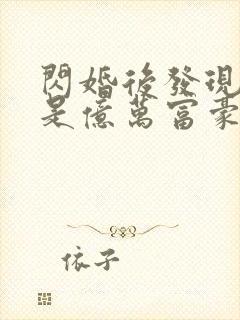 閃婚後發現
是億萬富豪
依子